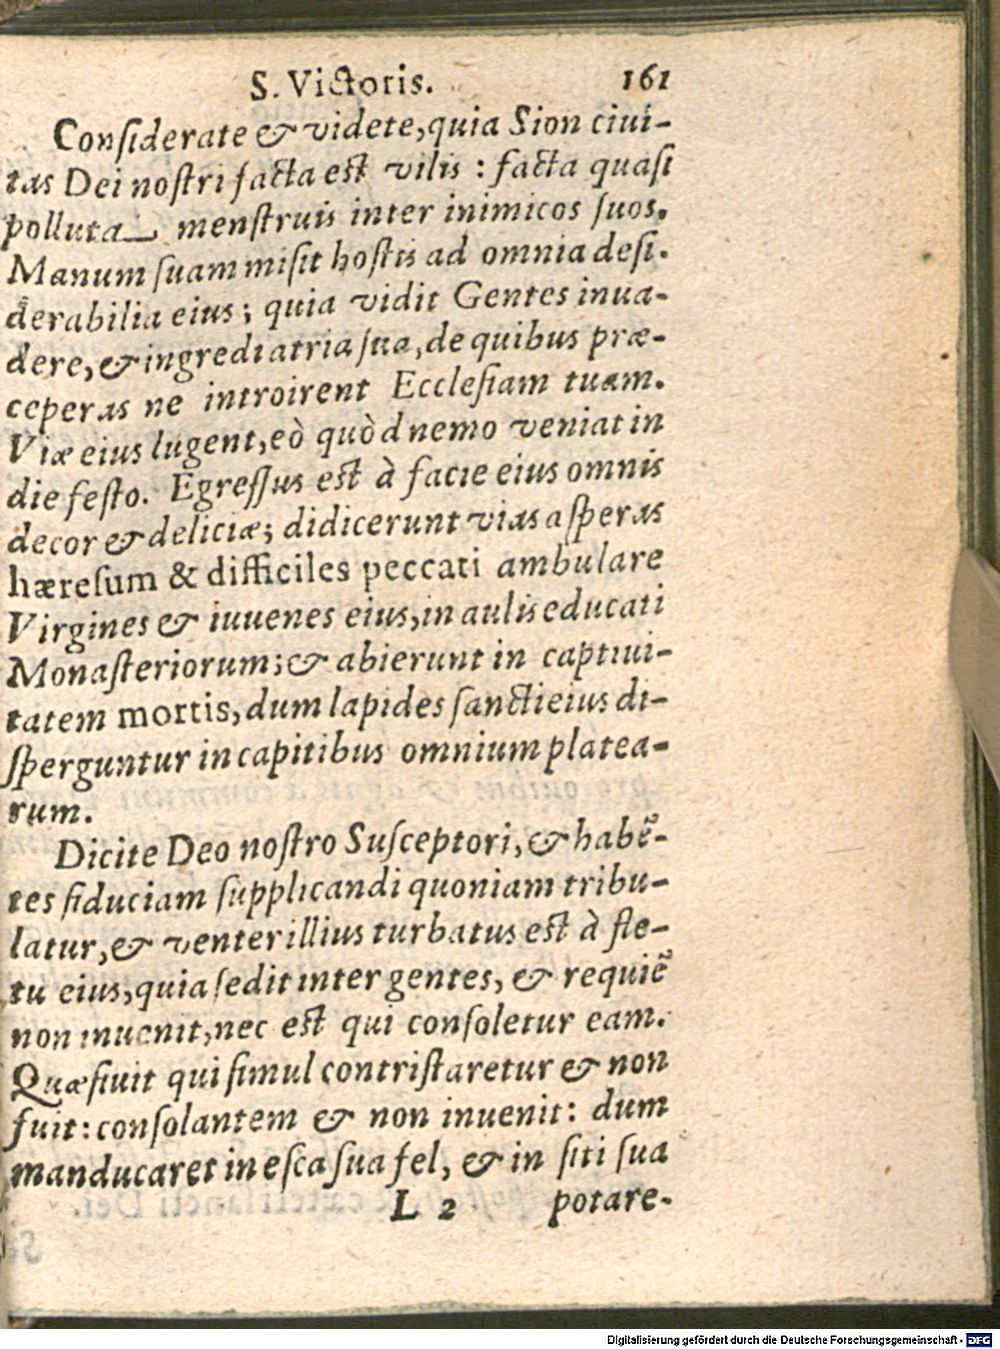 S. Victoris. 161
Considerate & videte, quia Sion ciui-
tas Dei nostri facta est vilis : facta quasi
polluta menstruis inter inimicos suos.
Manum suam misit hostis ad omnia desi-
derabilia eius ; quia vidit Gentes inua-
dere, & ingredi atria sua, de quibus præ-
ceperas ne introirent Ecclesiam tuam.
Viæ eius lugent, eò quòd nemo veniat in
die festo. Egressus est à facie eius omnis
decor & deliciæ; didicerunt vias asperas
hæresum & difficiles peccati ambulare
Virgines & iuuenes eius, in aulis educati
Monasteriorum; & abierunt in captiui-
tatem mortis, dum lapides sancti eius di-
sperguntur in capitibus omnium platea-
rum.
Dicite Deo nostro Susceptori, & habẽ-
tes fiduciam supplicandi quoniam tribu-
latur, & venter illius turbatus est à fle-
tu eius, quia sedit inter gentes, & requiẽ
non inuenit, nec est qui consoletur eam.
Quæsiuit qui simul contristaretur & non
fuit: consolantem & non inuenit: dum
manducaret in esca sua fel, & in siti sua
L 2 potare-
Digitalisierung gefördert durch die Deutsche Forschungsgemeinschaft - DFG